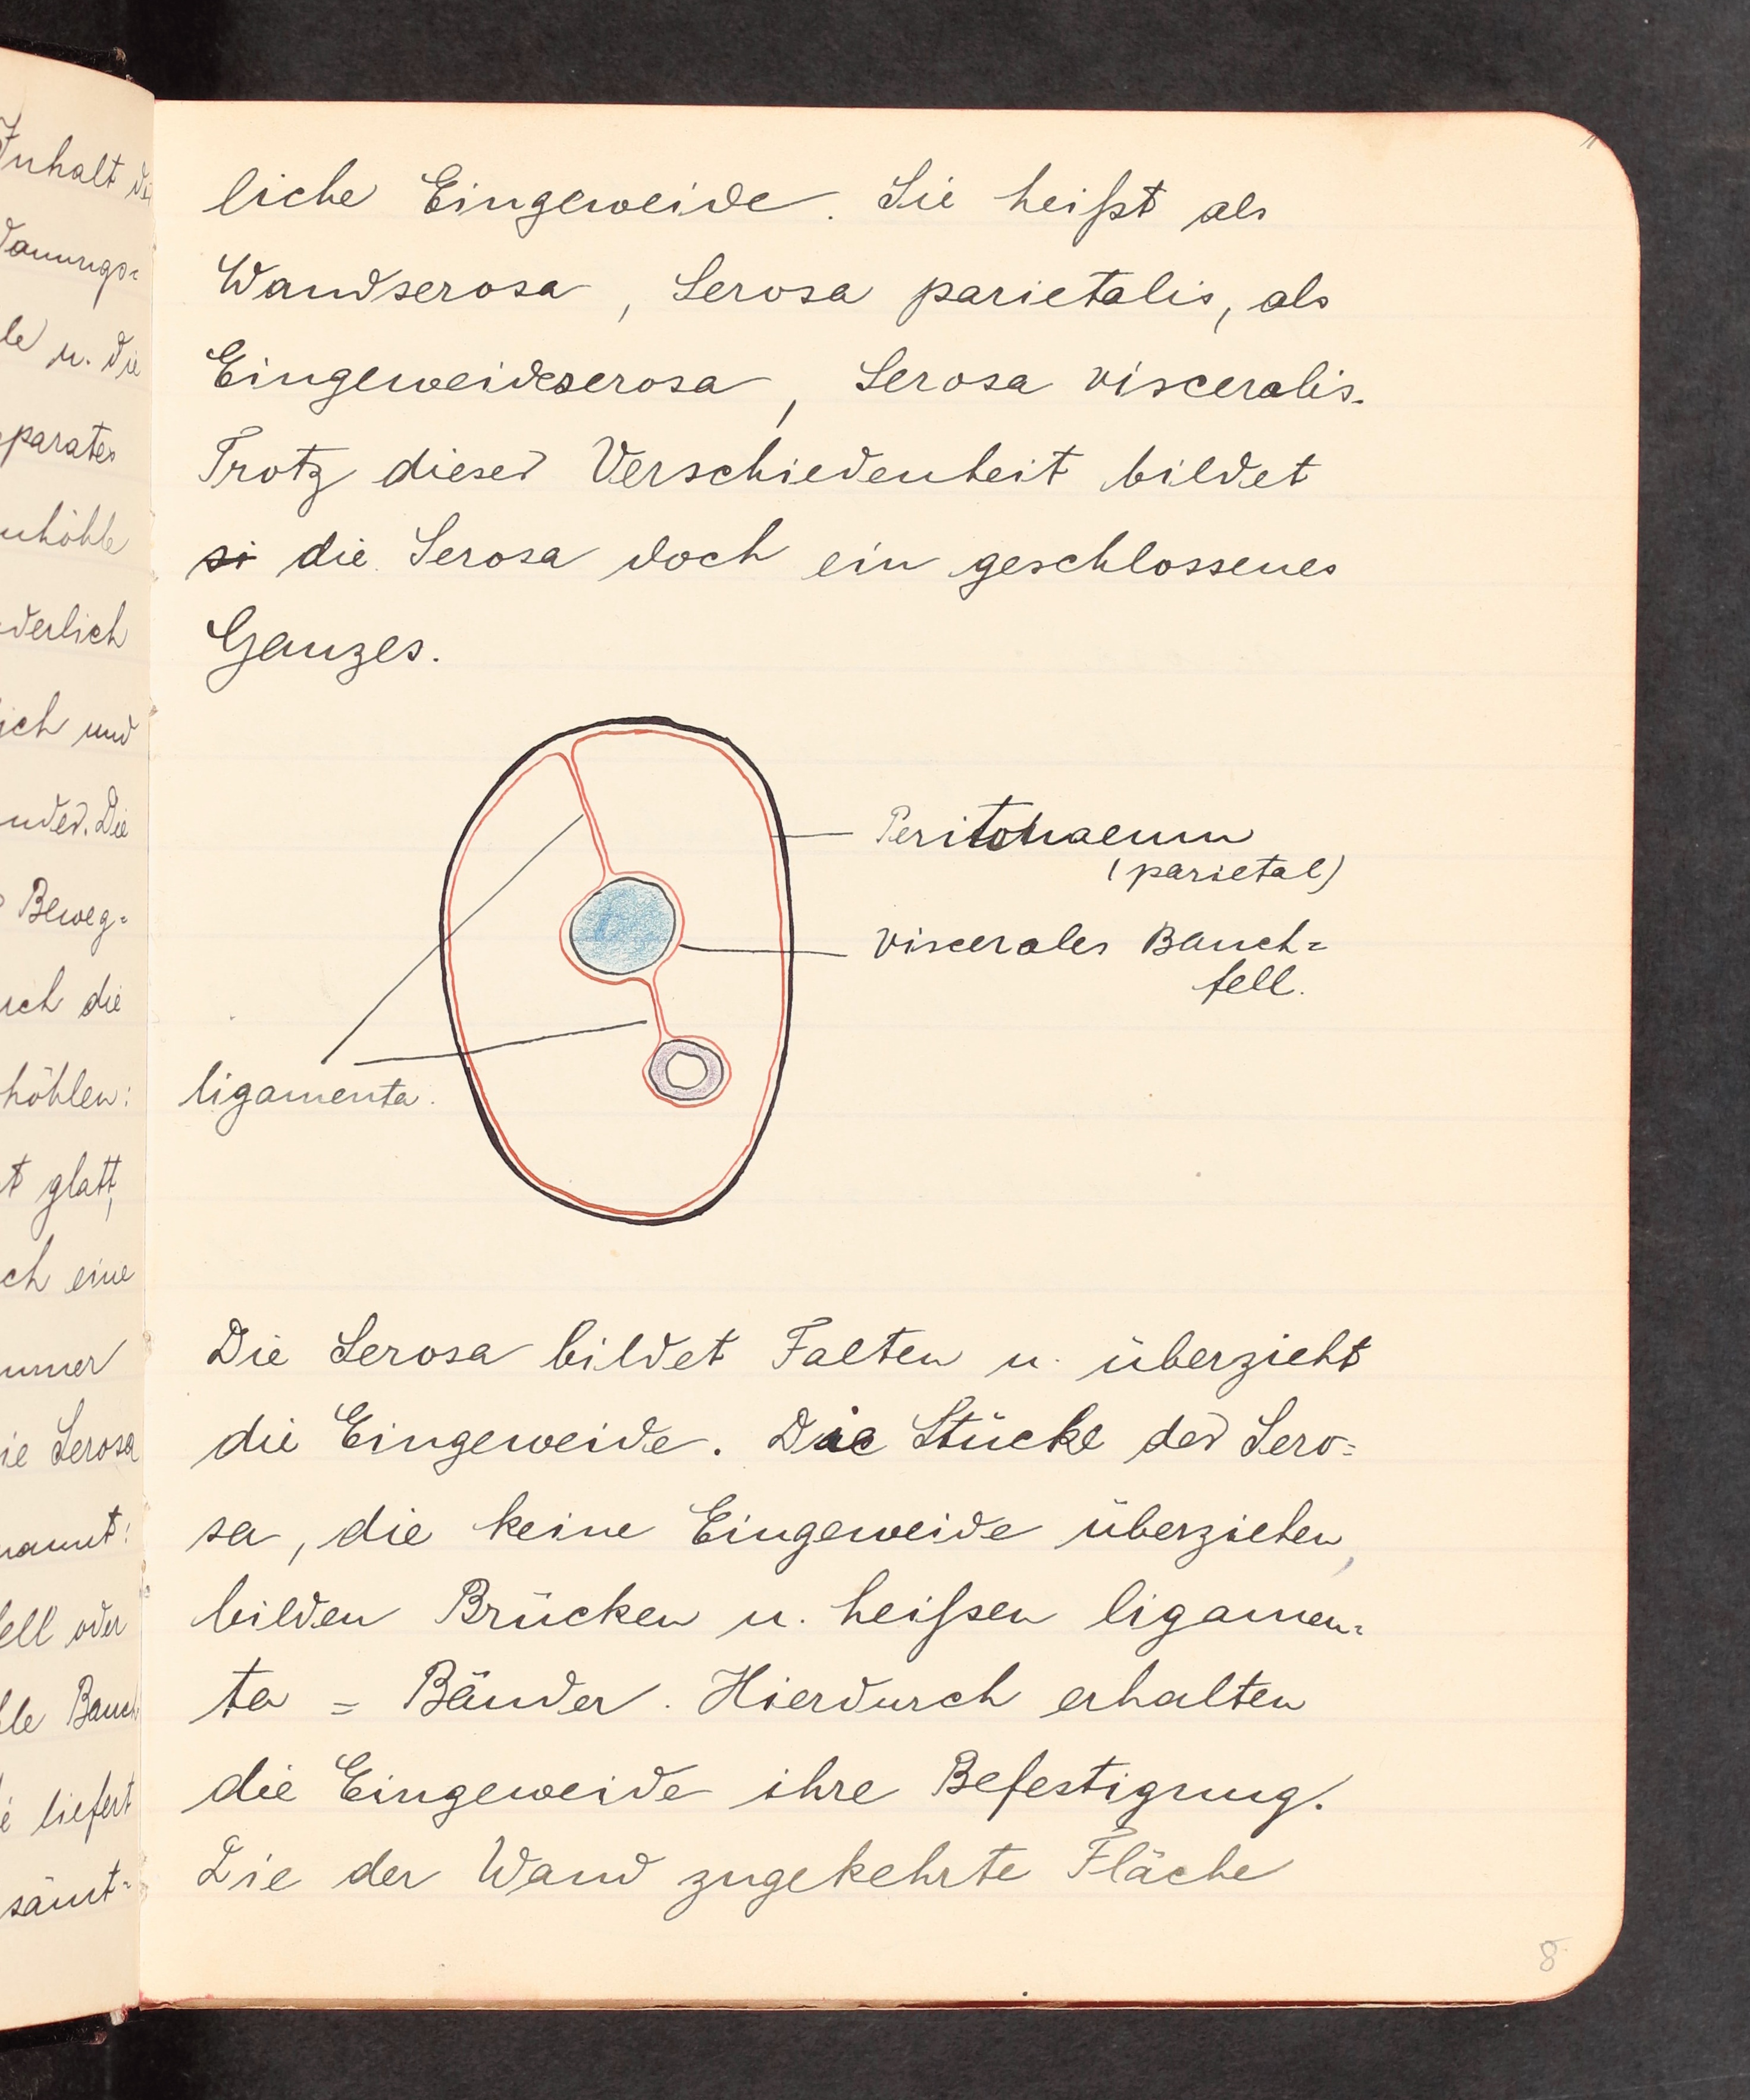 Inhalt
danungs-
le u. die
parates
nhöhle
derlich
ich und
nder. Die
Beweg-
rch die
höhlen:
t glatt,
ch eine
mmer
ie Serosa
nannt:
fell oder
le Bauch
liefert
sämt-
liche Eingeweide. Sie heißt als
Wandserosa, Serosa parietalis, als
Eingeweideserosa, Serosa visceralis.
Trotz dieser Verschiedenheit bildet
si die Serosa doch ein geschlossenes
Ganzes.
Peritonaeum
(parietal)
viscerales Bauch=
fell.
ligamenta.
Die Serosa bildet Falten u. überzieht
die Eingeweide. Die Stücke der Sero=
sa, die keine Eingeweide überziehen,
bilden Brücken u. heißen ligamen=
ta = Bänder. Hierdurch erhalten
die Eingeweide ihre Befestigung.
Die der Wand zugekehrte Fläche
8